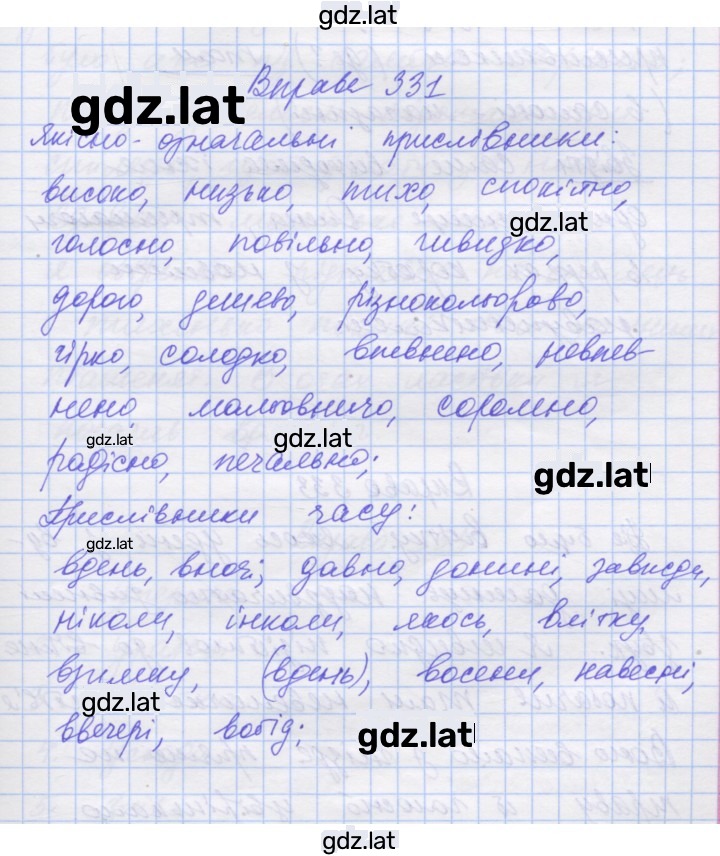 gdz.lat
Вправа 331
gdz.lat
Якісно-означальні прислівники:
високо, низько, тихо, спокійно,
gdz.lat
голосно, повільно, швидко,
дорого, дешево, різнокольорово,
гірко, солодко, впевнено, невпев-
нено мальовничо, соромно,
gdz.lat gdz.lat
радісно, печально;
gdz.lat
Прислівники часу:
gdz.lat
вдень, вночі, давно, донині, завжди,
ніколи, інколи, якось, влітку,
взимку, (вдень), восени, навесні,
gdz.lat
ввечері, вобід;
gdz.lat
gdz.lat